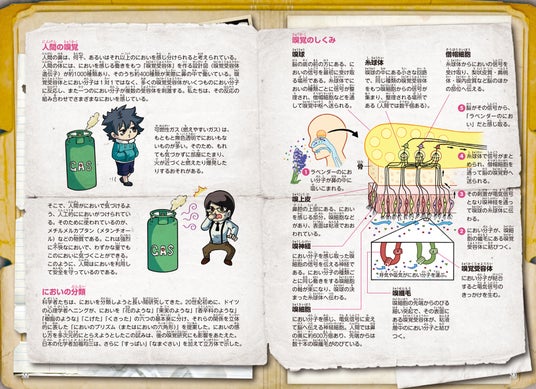 人間の嗅覚
人間の鼻は、何千、あるいはそれ以上のにおいを感じ分けられると考えられている。
人間の体には、においを感じる働きをもつ「嗅覚受容体」を作る設計図(嗅覚受容体
遺伝子)が約1000種類あり、そのうち約400種類が実際に鼻の中で働いている。嗅覚
受容体とにおい分子は1対1ではなく、多くの嗅覚受容体がいくつものにおい分子
に反応し、また一つのにおい分子が複数の受容体を刺激する。私たちは、その反応の
組み合わせでさまざまなにおいを感じている。
可燃性ガス(燃えやすいガス)は、
もともと無色透明でにおいもな
いものが多い。そのため、もれ
ても気づかずに部屋にたまり、
火が近づくと燃えたり爆発した
りするおそれがある。
GAS
そこで、人間がにおいで気づけるよ
う、人工的ににおいがつけられてい
る。そのために使われているのが、
メチルメルカプタン(メタンチオー
ル)などの物質である。これは強烈
に不快なにおいで、わずかな量でも
このにおいに気づくことができる。
このように、人間はにおいを利用し
て安全を守っているのである。
GAS
においの分類
科学者たちは、においを分類しようと長い間研究してきた。20世紀初めに、ドイツ
の心理学者ヘニングが、においを「花のような」「果実のような」「香辛料のような」
「樹脂のような」「こげた」「くさった」の六つの基本臭に分け、それらの関係を立体
的に表した「においのプリズム(またはにおいの六角形)」を提案した。においの感
じ方を多次元的にとらえようとしたこの試みは、後の嗅覚研究にも影響をあたえた。
日本の化学者加福均三は、さらに「すっぱい」「なまぐさい」を加えて立方体で示した。
嗅覚のしくみ
嗅球
脳の底の前の方にある、に
おいの信号を最初に受け取
る場所である。糸球体から
のにおいの信号が整理され
たあと、僧帽細胞などを通
して嗅覚中枢へ送られる。
糸球体
嗅球の中にある小さな回路
で、同じ種類の嗅覚受容体
をもつ嗅細胞からの信号を
集まり、整理する場所であ
る(人間では数千個ある)。
僧帽細胞
糸球体からにおいの信号を
受け取り、梨状皮質・扁桃
体・嗅内皮質など脳のほか
の部位へ伝える。
5 脳がその信号から、
「ラベンダーのにお
い」だと感じ取る。
4 糸球体で信号がまと
められ、僧帽細胞を
通って脳の嗅覚野へ
送られる。
1 ラベンダーのにお
い分子が鼻の中に
吸いこまれる。
骨
3 その刺激が電気信号
となり嗅神経を通っ
て嗅球の糸球体に伝
わる。
2 におい分子が、嗅細
胞の嗅毛にある嗅覚
受容体に結びつく。
嗅上皮
鼻腔の上部にある、におい
を感じる部分。嗅細胞など
があり、表面は粘液でおお
われている。
嗅神経
においを感じ取った嗅細胞
の信号を伝える神経である。
におい分子の種類ごとに同じ働きをする嗅細胞
の軸が束になり、嗅球の決
まった糸球体へ伝わる。
嗅細胞
におい分子を感じ、電気信号に変え
て脳へ伝える神経細胞。人間では鼻
の奥に約600万個あり、先端からは
数十本の嗅繊毛がのびている。
嗅覚受容体
におい分子が結合
すると電気信号の
きっかけを生む。
嗅繊毛
嗅細胞の先端からのびる
細い突起で、その表面に
ある嗅覚受容体が、粘液
中のにおい分子と結びつ
く。